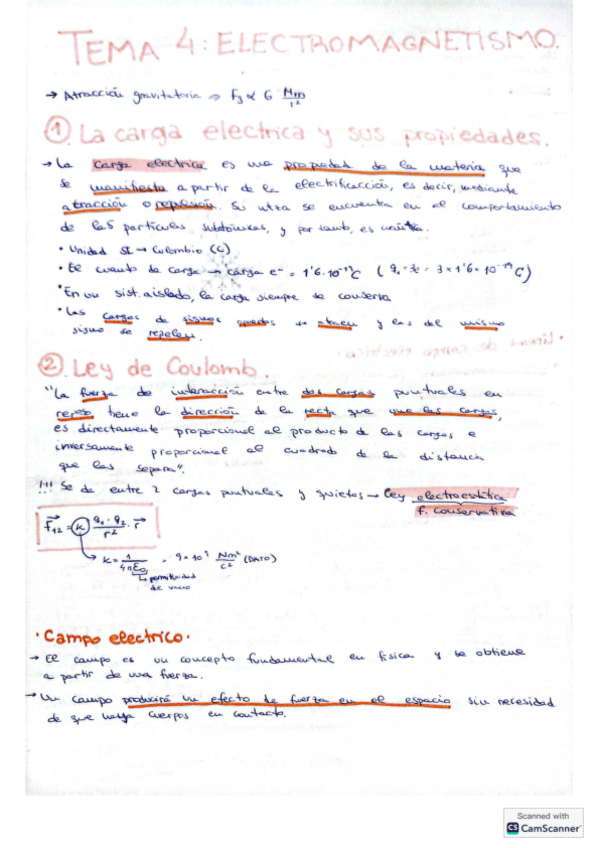 TEMA 4: ELECTROMAGNETISMO.
→ Atracción gravitatoria ⇒ Fg ∝ G Mm/r²
① La carga electrica y sus propiedades.
→ La carga electrica es una propiedad de la materia que
se manifiesta a partir de la electrificación, es decir, mediante
atracción o repulsión. Su se encuentra en el comportamiento
de las partículas subatómicas, y por tanto, es
• Unidad SI → Culombio (C)
• El cuanto de carga → carga e⁻ = 1'6·10⁻¹⁹C ( = 3 × 1'6 × 10⁻¹⁹ C)
• En un sist. aislado, la carga siempre se conserva
• Las cargas de signos opuestos se atraen y las del mismo
signo se repelen.
② Ley de Coulomb.
"La fuerza de interacción entre dos cargas puntuales en
reposo tiene la dirección de la recta que une las cargas,
es directamente proporcional al producto de las cargas e
inversamente proporcional al cuadrado de la distancia
que las separa".
!!! Se da entre 2 cargas puntuales y quietas → Ley electroestática
f. conservativa
F₁₂ = k q₁·q₂/r² · r
k = 1/4πε₀ = 9×10⁹ Nm²/C² (DATO)
↳ permitividad
de vacío
• Campo electrico •
→ El campo es un concepto fundamental en física y se obtiene
a partir de una fuerza.
→ Un campo producirá un efecto de fuerza en el espacio sin necesidad
de que haya cuerpos en contacto.
Scanned with
CS CamScanner